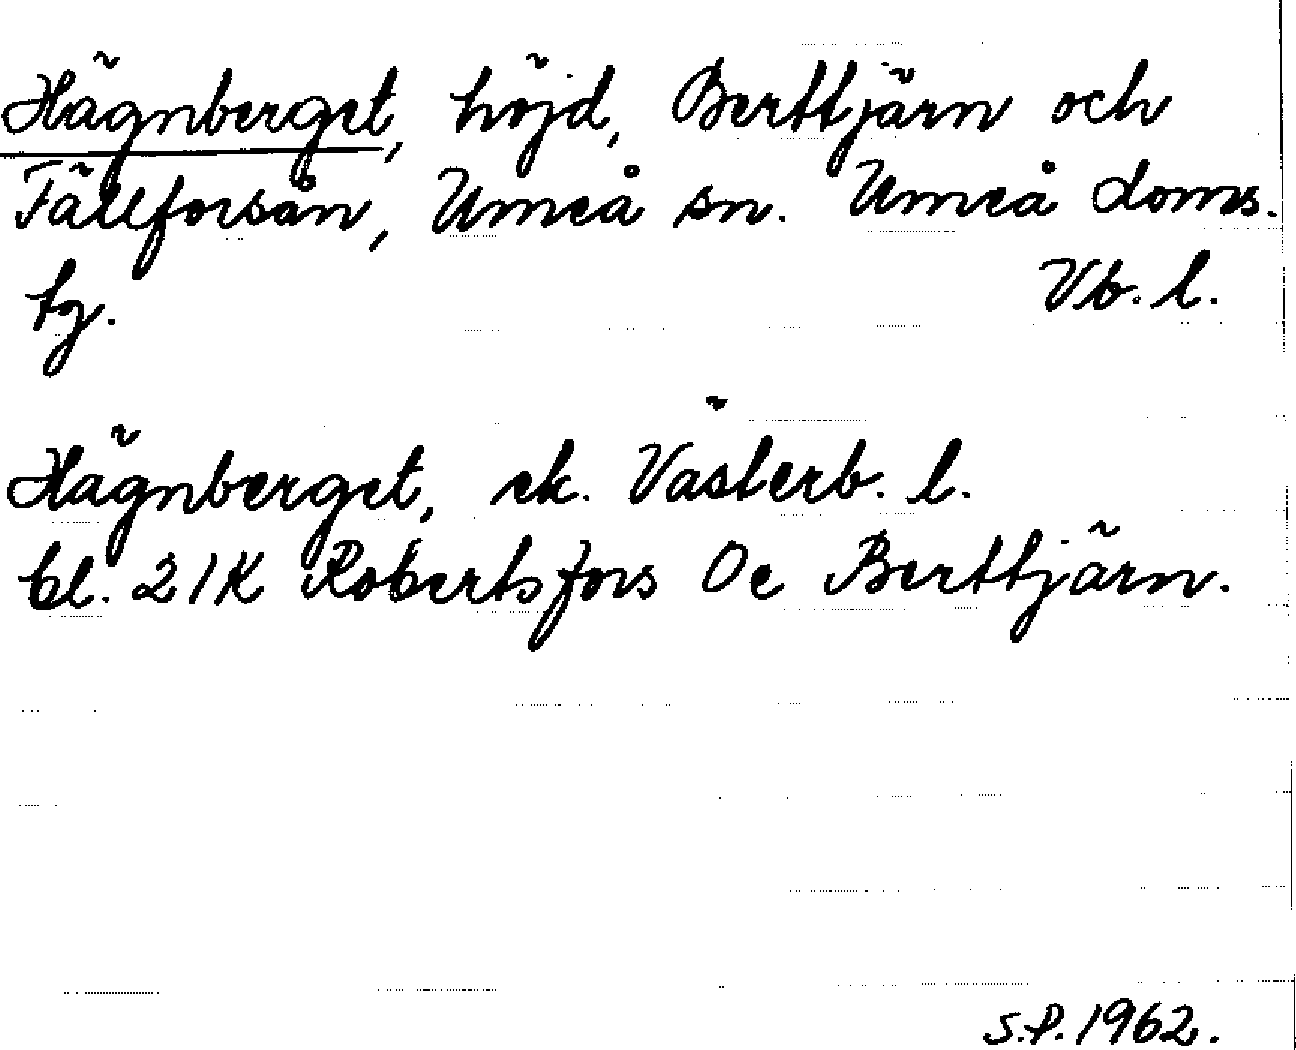 Hägnberget, höjd, Berttjärn och
Fällforsån, Umeå sn. Umeå doms.
tg. Vb. l.
Hägnberget, ek. Västerb. l.
bl. 21K Robertsfors Oe Berttjärn.
S.P. 1962.